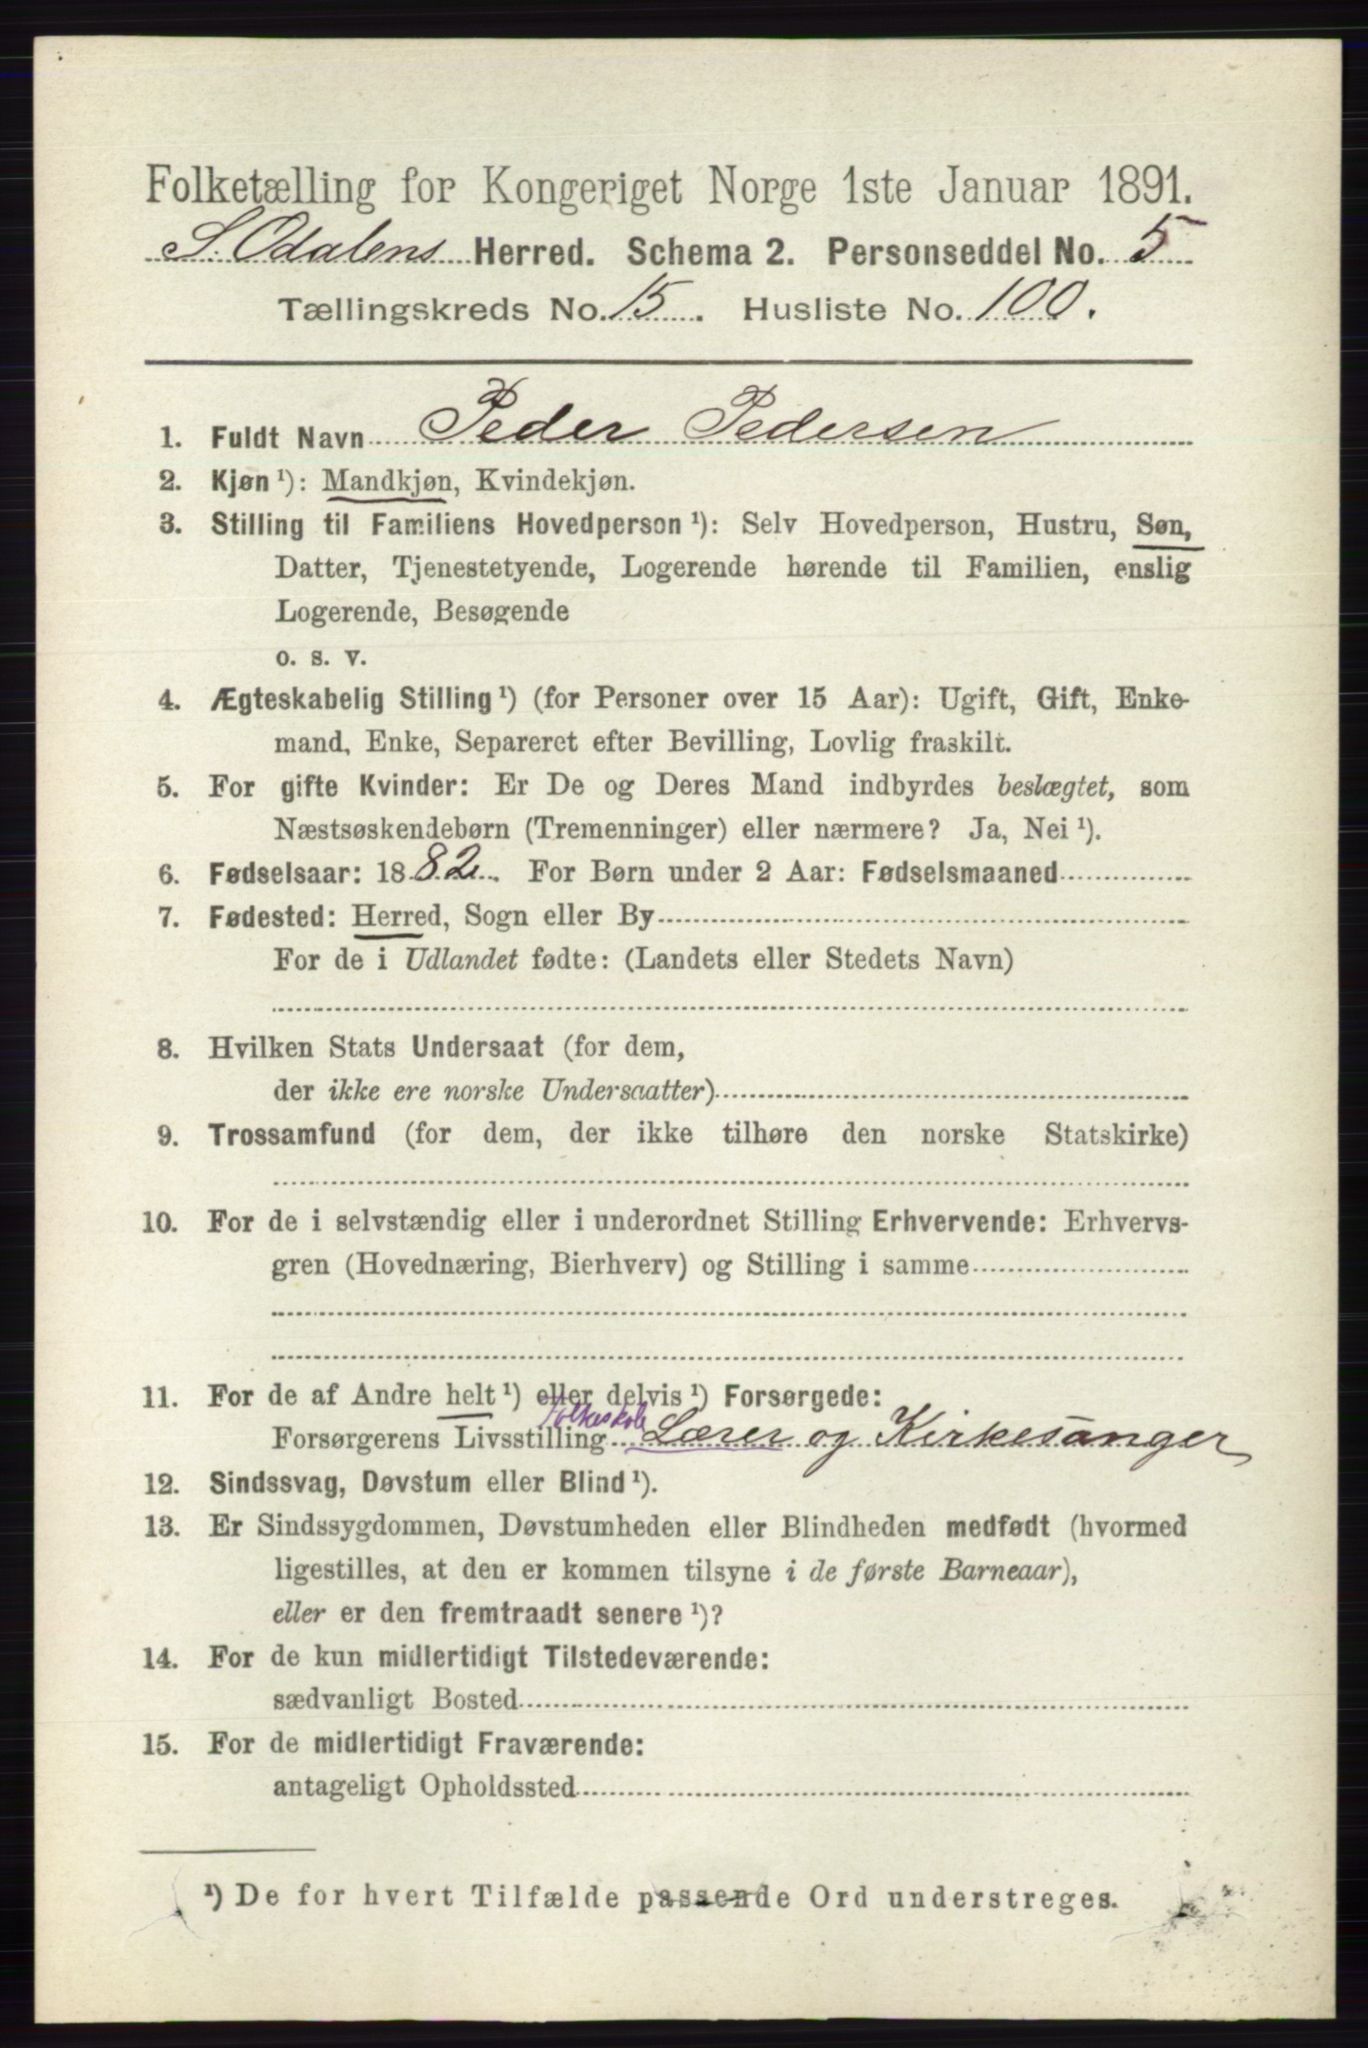 Folketælling for Kongeriget Norge 1ste Januar 1891.
S. Odalens Herred. Schema 2. Personseddel No. 5
Tællingskreds No. 15. Husliste No. 100.
1. Fuldt Navn Peder Pedersen
2. Kjøn ¹): Mandkjøn, Kvindekjøn.
3. Stilling til Familiens Hovedperson ¹): Selv Hovedperson, Hustru, Søn,
Datter, Tjenestetyende, Logerende hørende til Familien, enslig
Logerende, Besøgende
o. s. v.
4. Ægteskabelig Stilling ¹) (for Personer over 15 Aar): Ugift, Gift, Enke-
mand, Enke, Separeret efter Bevilling, Lovlig fraskilt.
5. For gifte Kvinder: Er De og Deres Mand indbyrdes beslægtet, som
Næstsøskendebørn (Tremenninger) eller nærmere? Ja, Nei ¹).
6. Fødselsaar: 1882. For Børn under 2 Aar: Fødselsmaaned
7. Fødested: Herred, Sogn eller By
For de i Udlandet fødte: (Landets eller Stedets Navn)
8. Hvilken Stats Undersaat (for dem,
der ikke ere norske Undersaatter)
9. Trossamfund (for dem, der ikke tilhøre den norske Statskirke)
10. For de i selvstændig eller i underordnet Stilling Erhvervende: Erhvervs-
gren (Hovednæring, Bierhverv) og Stilling i samme
11. For de af Andre helt ¹) eller delvis ¹) Forsørgede:
Folkeskole
Forsørgerens Livsstilling Lærer og Kirkesanger
12. Sindssvag, Døvstum eller Blind ¹).
13. Er Sindssygdommen, Døvstumheden eller Blindheden medfødt (hvormed
ligestilles, at den er kommen tilsyne i de første Barneaar),
eller er den fremtraadt senere ¹)?
14. For de kun midlertidigt Tilstedeværende:
sædvanligt Bosted
15. For de midlertidigt Fraværende:
antageligt Opholdssted
¹) De for hvert Tilfælde passende Ord understreges.